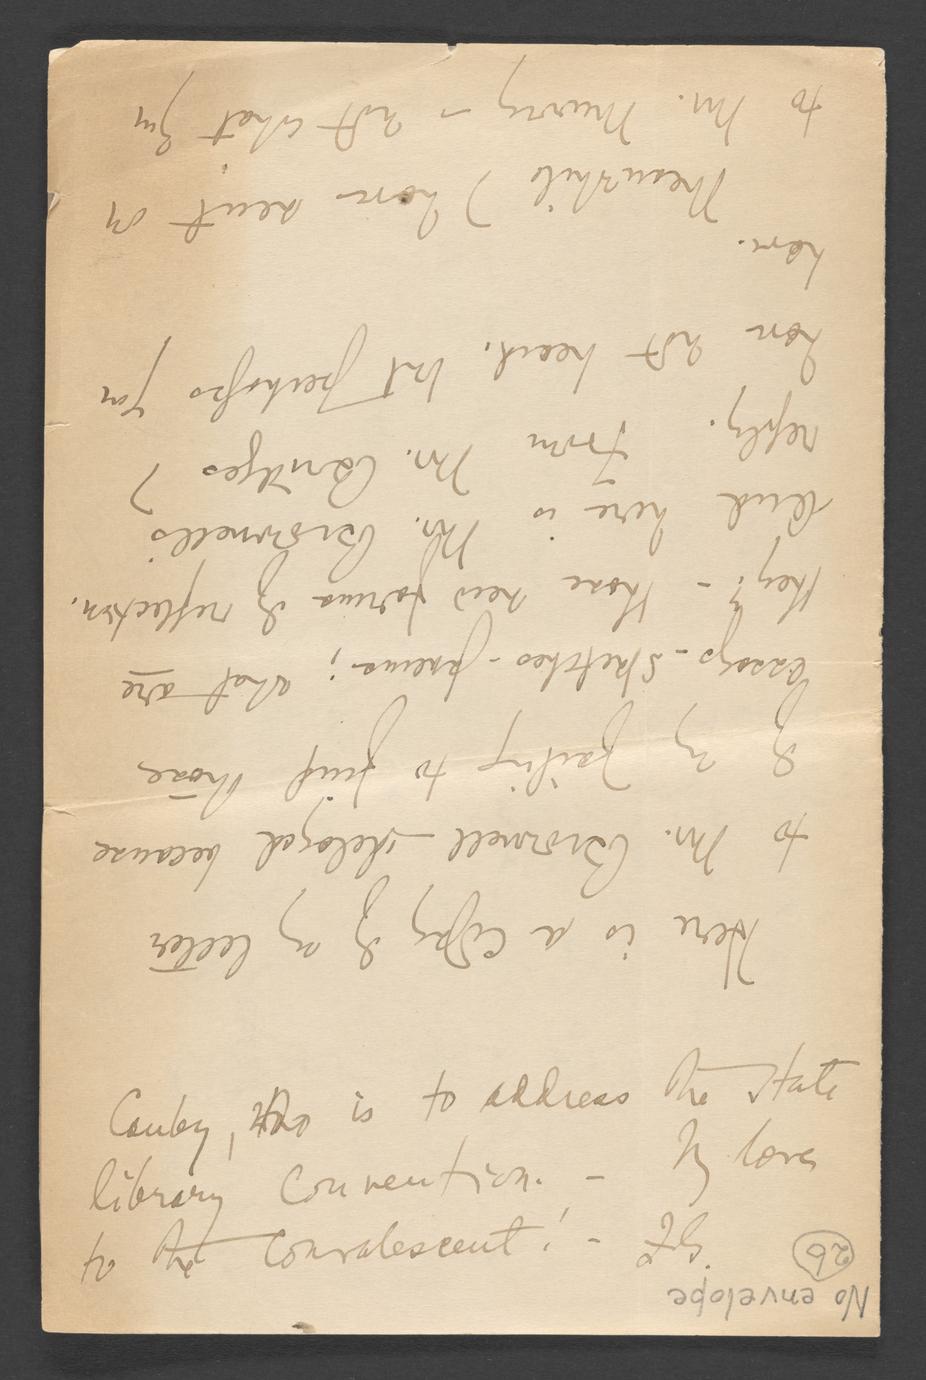 No envelope
26
Here is a copy of my letter
to Mr. Brownell delayed because
of my failing to find those
Essays-Sketches-poems; what are
they? - those new forms of reflection.
And here is Mr. Brownell's
reply. From Mr. Bridges I
have not heard. But perhaps you
have.
Meanwhile I have sent on
to Mr. Murray - not what you
Canby, is to address the State
library convention. - My love
to the convalescent! -